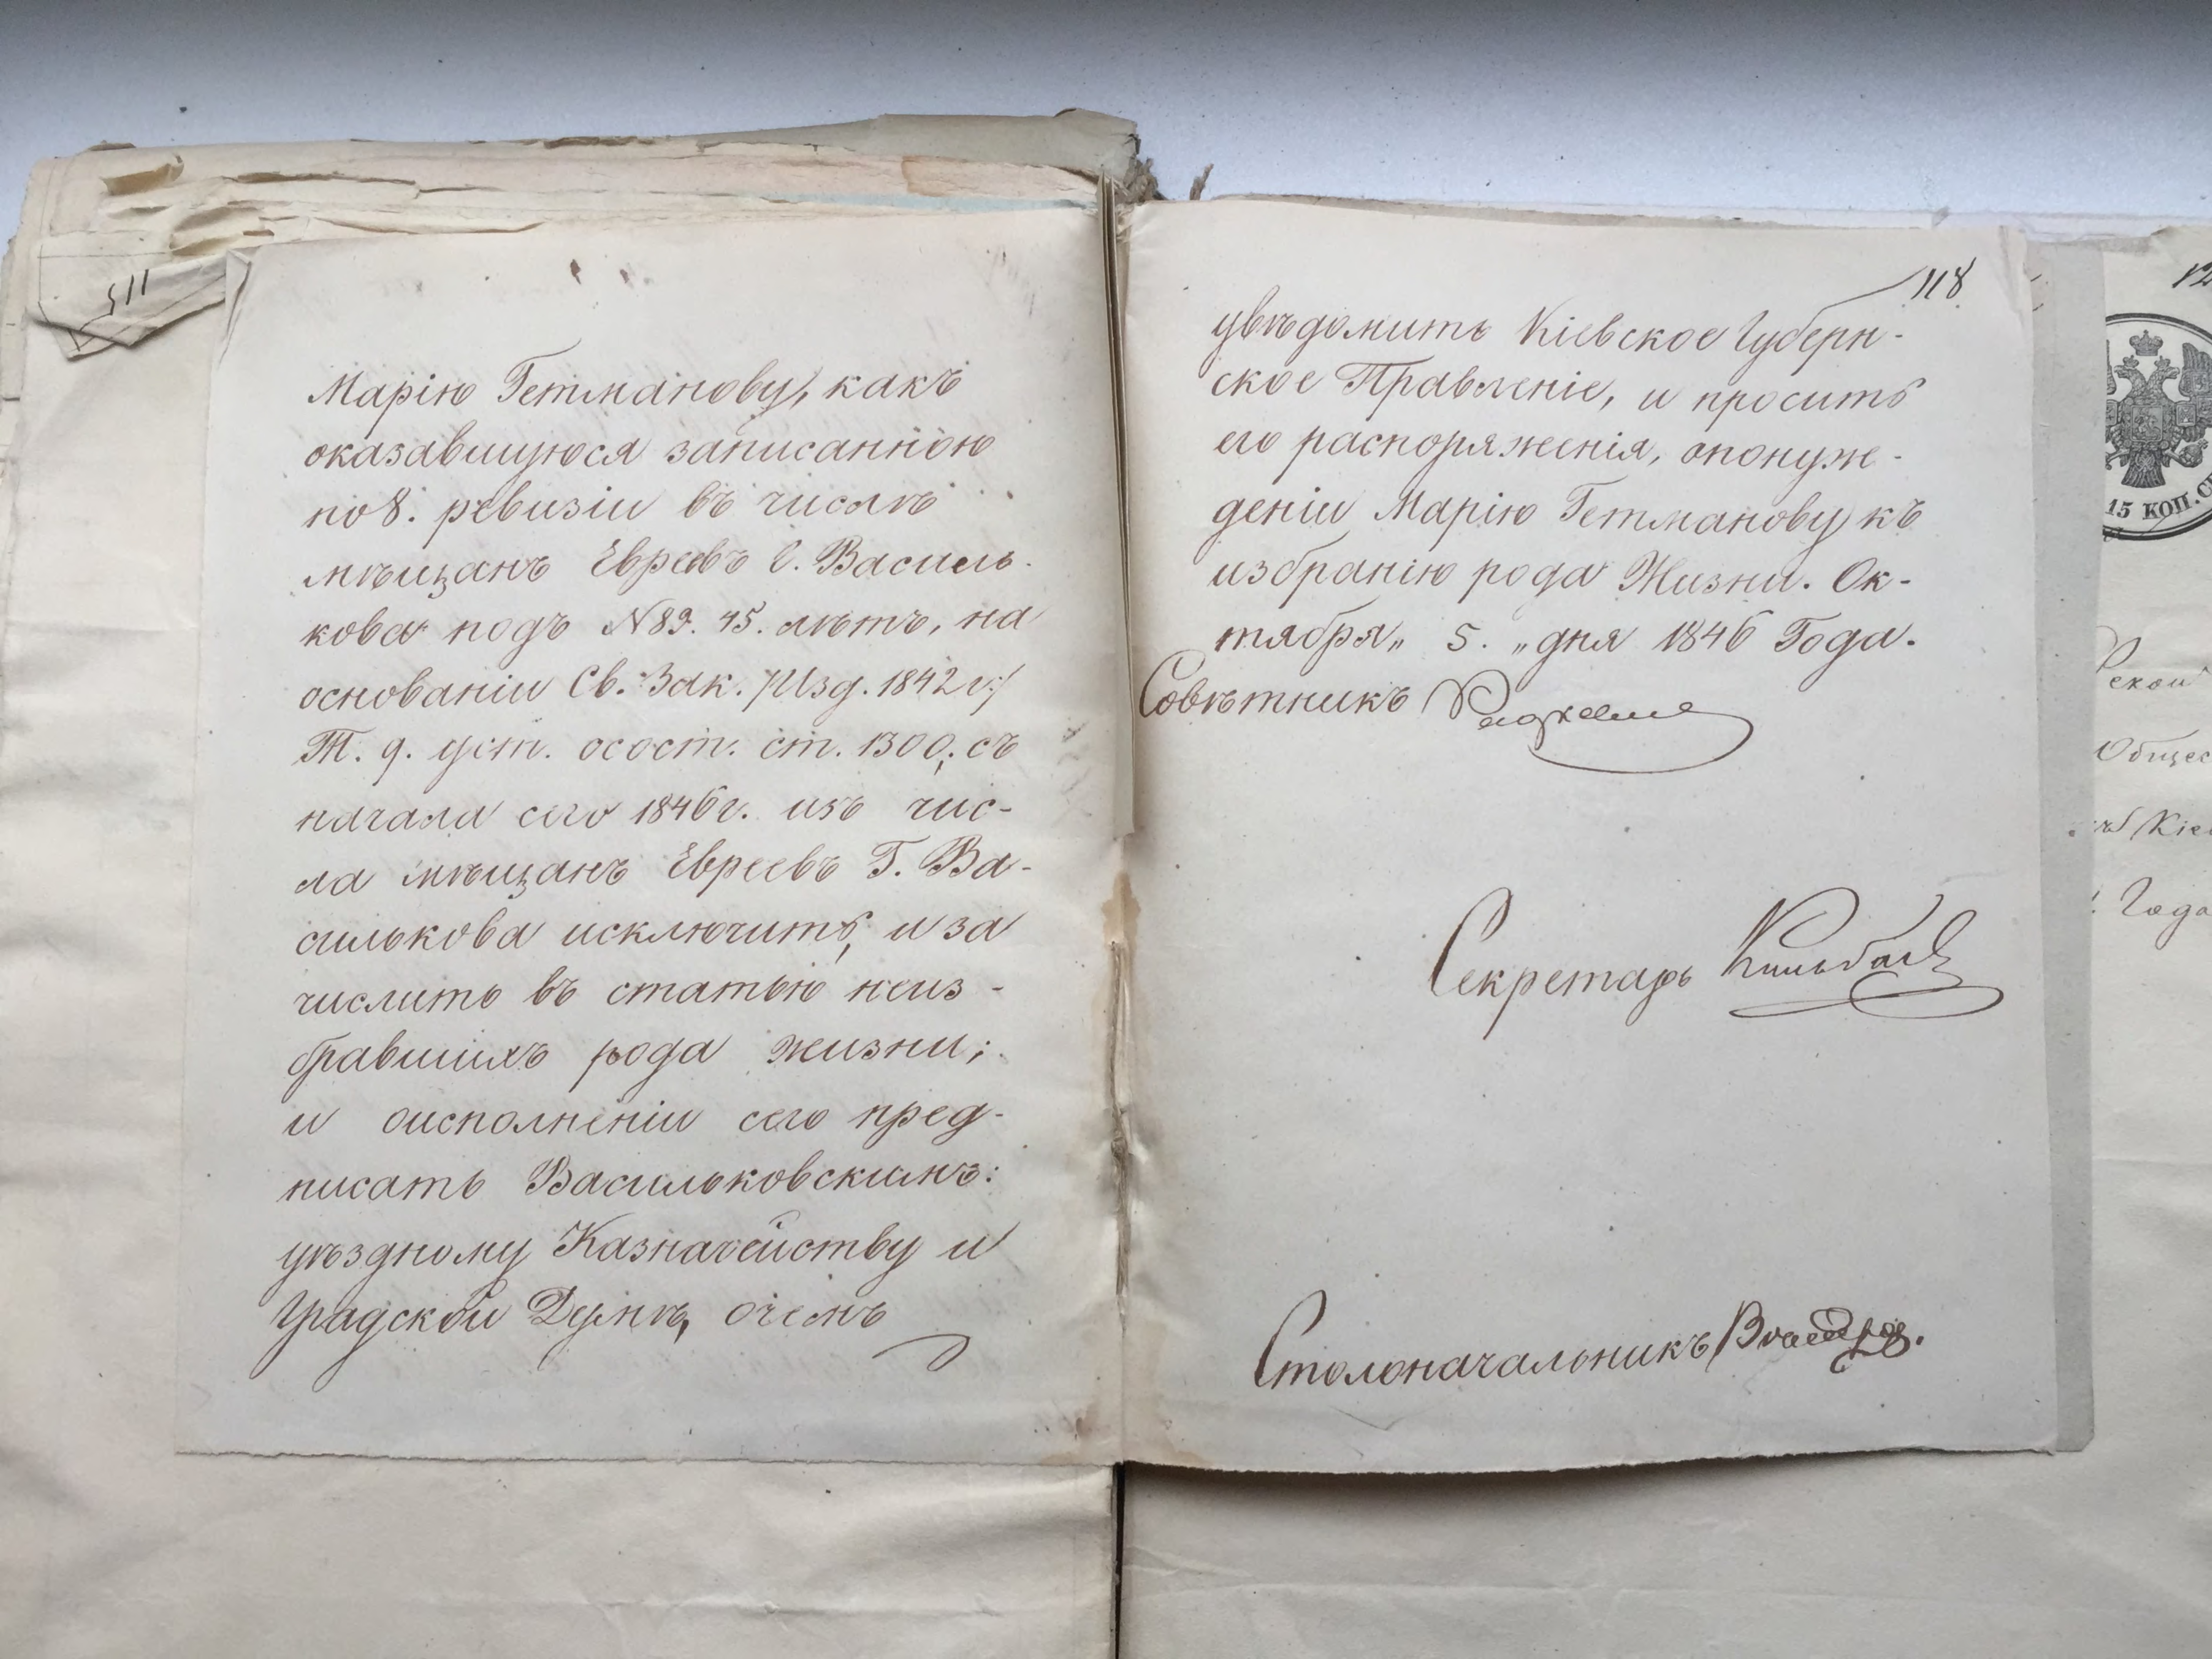 115
Марію Гетманову, какъ
оказавшуюся записанною
по 8. ревизіи въ числѣ
мѣщанъ Евреевъ г. Василь-
кова подъ №89. 45. лѣтъ, на
основаніи Св. Зак. /Изд. 1842 г:/
Т. 9. уст. осост. ст. 1300; съ
начала сего 1846 г. изъ чис-
ла мѣщанъ Евреевъ Г. Ва-
силькова исключить, и за
числить въ статью неиз-
бравшихъ рода жизни;
и оисполненіи сего пред-
писать Васильковскимъ:
уѣздному Казначейству и
Градской Думѣ, очемъ
118
увѣдомить Кіевское Губерн-
ское Правленіе, и просить
его распоряженія, опонуж-
деніи Марію Гетманову къ
избранію рода Жизни. Ок-
тября„ 5. „дня 1846 Года.
Совѣтникъ
Секретарь
Столоначальникъ
12
15 КОП. С
ской
Общес
Кіе
Года